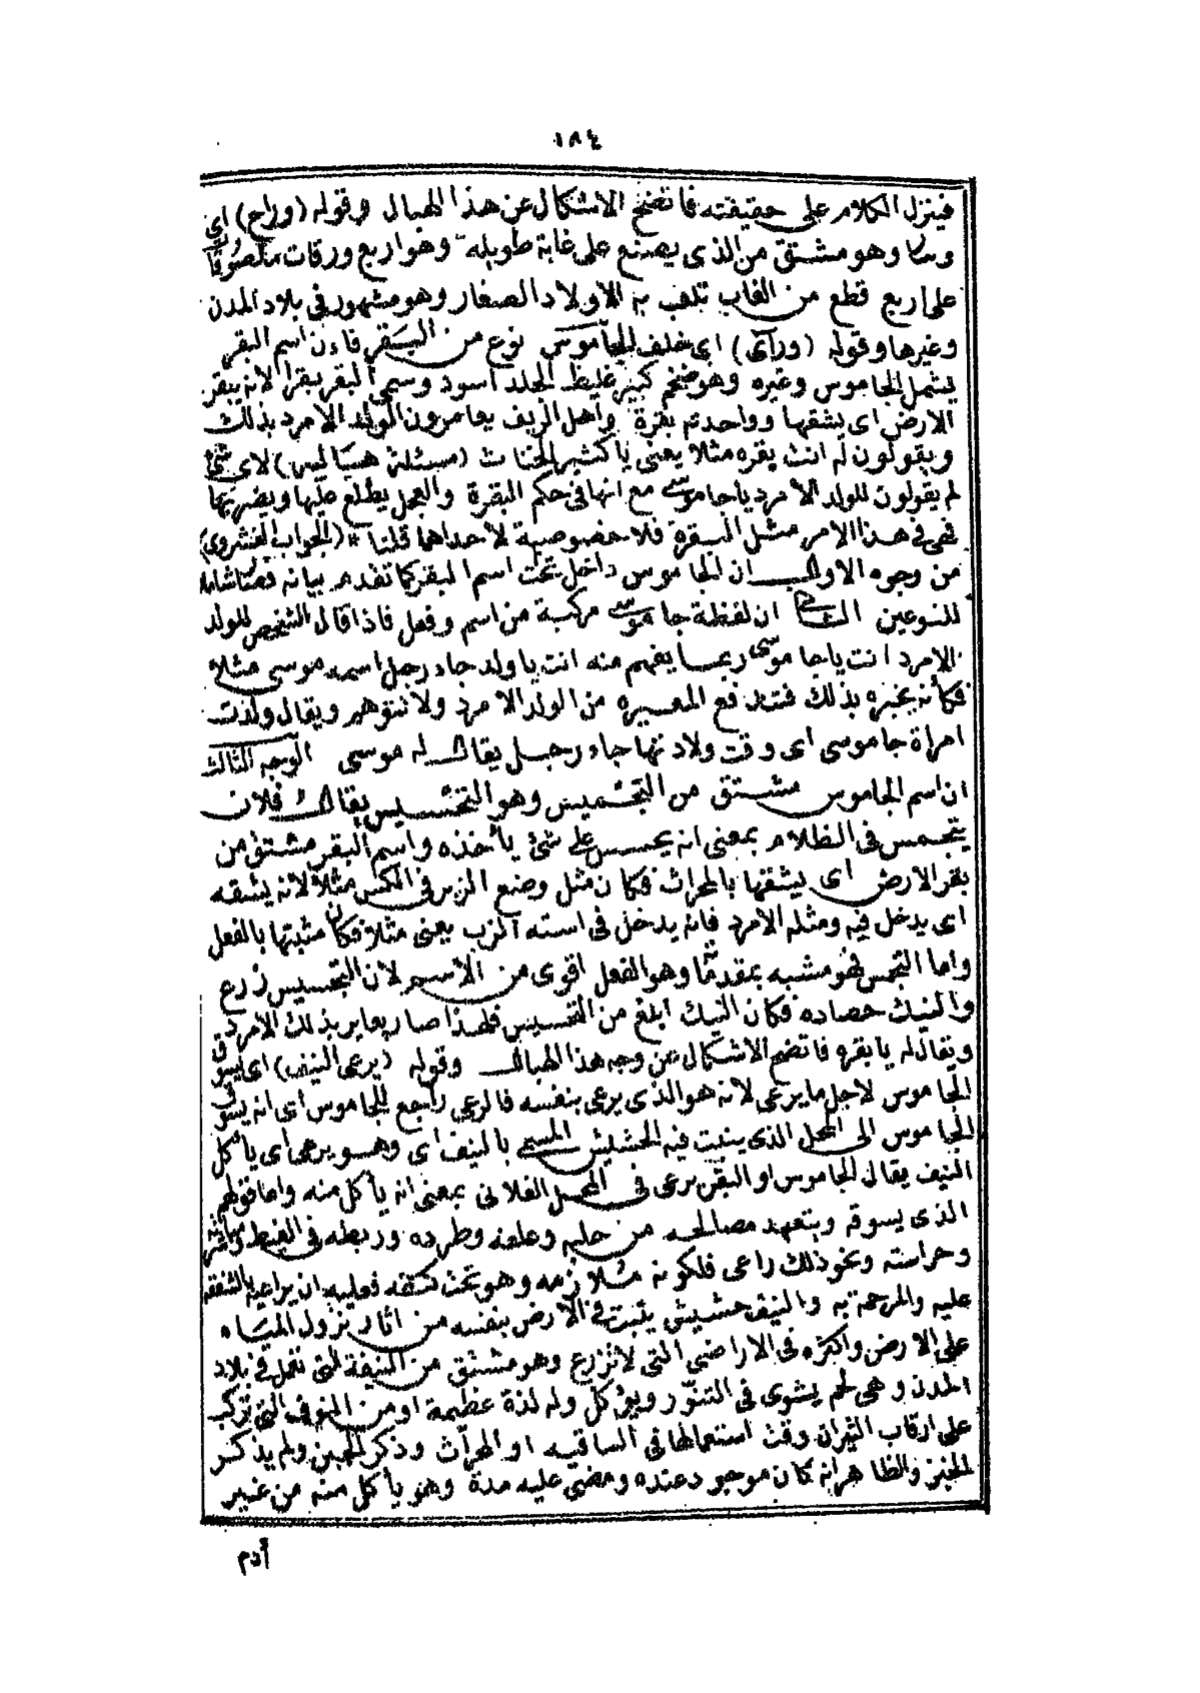 ١٨٤
فينزل الكلام على حقيقته فاتضح الاشكال عن هذا الهبال وقوله (وراح) اى
وهو مشتق من الذى يصنع على غابة طويله وهو اربع ورقات ملصوقة
على اربع قطع من الغاب تلعب به الاولاد الصغار وهو مشهور فى بلاد المدن
وغيرها وقوله (وراى) اى خلف الجاموس نوع من البقر فاءن اسم البقر
يشمل الجاموس وغيره وهو ضخم كبير غليظ الجلد اسود وسمى البقر بقرا لانه يبقر
الارض اى يشقها وواحدته بقرة واهل الريف يعايرون الولد الامرد بذلك
ويقولون له انت بقره مثلا يعنى يا كثير (مسئلة هباليه) لاى شئ
لم يقولون للولد الامرد يا جاموسه مع انها فى حكم البقرة والعجل يطلع عليها ويضربها
فهى فى هذا الامر مثل البقره فلا خصوصية لاحداهما قلنا (الجواب الفشروى)
من وجوه الاول ان الجاموس داخل تحت اسم البقر كما تقدم بيانه فصار شاملا
للنوعين الثانى ان لفظة جاموسه مركبة من اسم وفعل فاذا قال الشخص للولد
الامرد انت يا جا موسى ربما يفهم منه انت يا ولد جاء رجل اسمه موسى مثلا
فكأنه يخبره بذلك فتندفع المعيره من الولد الامرد ولا تتوهم ويقال ولدت
امراة جاموسى اى وقت ولادتها جاء رجل يقال له موسى الوجه الثالث
ان اسم الجاموس مشتق من التجميس وهو التحسيس يقال فلان
يتجمس فى الظلام بمعنى انه يحسس على شئ يأخذه واسم البقر مشتق من
بقر الارض اى يشقها بالمحراث فكان مثل وضع الزب فى الكس مثلا لانه يشقه
اى يدخل فيه ومثله الامرد فانه يدخل فى استه الزب يعنى مثلا فكان مشبها بالفعل
واما التجمس فهو مشبه بمقدمتها وهو الفعل اقوى من الاسم لان التجسيس زرع
والنيك حصاده فكان النيك ابلغ من التحسيس فلهذا صار يعاير بذلك الامرد
ويقال له يا بقره فاتضح الاشكال عن وجه هذا الهبال وقوله (يرعى النيف) اى يسوق
الجاموس لاجل ما يرعى لانه هو الذى يرعى بنفسه فالرعى راجع للجاموس اى انه يسوق
الجاموس الى المحل الذى ينبت فيه الحشيش المسمى بالنيف اى وهو يرعى اى يأكل
النيف يقال الجاموس او البقر يرعى فى المحل الفلانى بمعنى انه يأكل منه واما قولهم
الذى يسوقه ويتعهد مصالحه من حلبه وعلفه وطرده وربطه فى الغيط ومباشرته
وحراسته ونحو ذلك راعى فلكونه ملازمه وهو تحت كنفه فعليه ان يراعيه بالشفقه
عليه والمرحمة به والنيف حشيش ينبت فى الارض بنفسه من اثار نزول المياه
على الارض واكثره فى الاراضى التى لا تزرع وهو مشتق من النيفة التى تعمل فى بلاد
المدن وهى لحم يشوى فى التنور ويؤكل وله لذة عظيمة او من النوف التى تركب
على ارقاب الثيران وقت استعمالها فى الساقيه او المحراث وذكر الجبن ولم يذكر
الخبز والظاهر انه كان موجود عنده ومضى عليه مدة وهو يأكل منه من غير
أدم